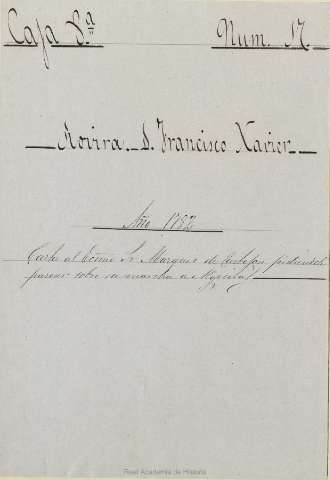 Caja 8.ª Num. 17.
Rovira. D. Francisco Xavier
Año 1782
Carta al Exmo Sr Marques de pidiendole
parecer sobre su marcha a
Real Academia de Historia